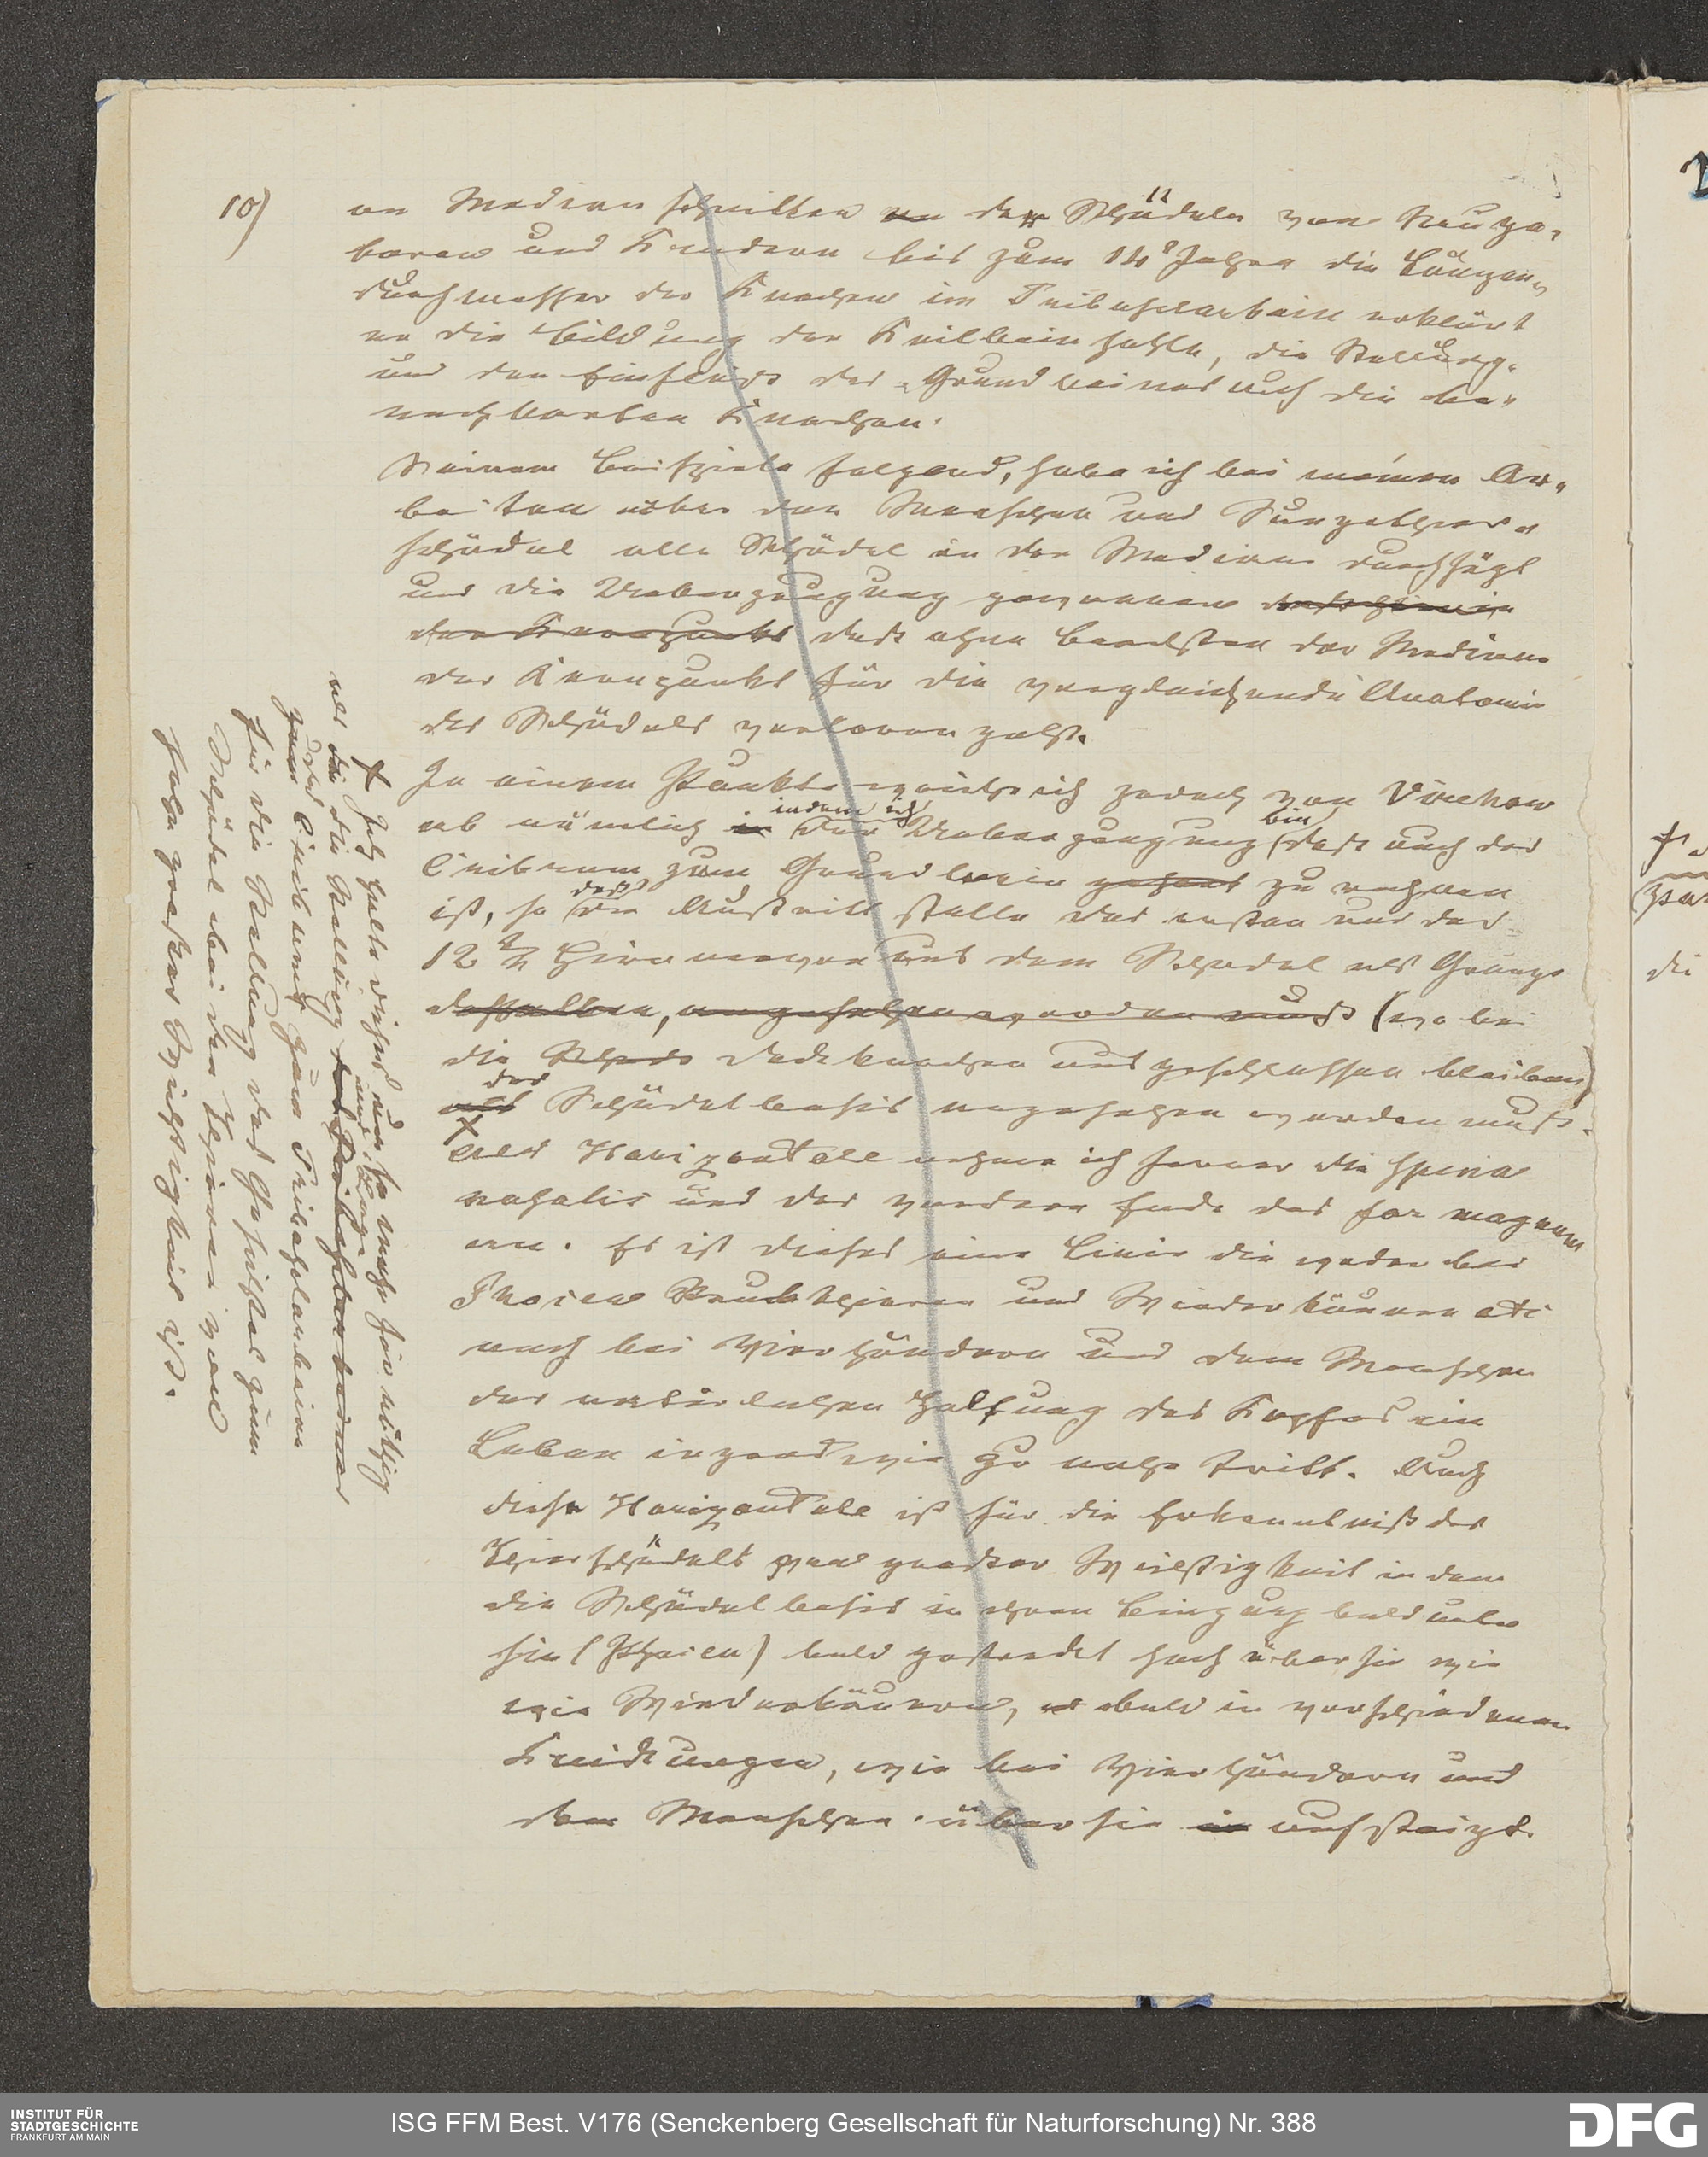 10)
an Median schnitten an der Schädeln von Neuge-
boren und Kindern bis zum 14 Jahre die Längen-
durchmesser der Knochen im Tribasilarbein erklärt
er die Bildung der Keilbeinhöhle, die Stellung
und den Einfluss des Grundbeines auf die be-
nachbarten Knochen.
Seinem Beispiele folgend, habe ich bei meinen Ar-
beiten über den Menschen und Säugethier-
schädel alle Schädel in der Mediane durchsägt
und die Ueberzeugung gewonnen
der Kernpunkt dass ohne Beachten der Mediane
der Kernpunkt für die vergleichende Anatomie
des Schädels verloren geht.
In einem Punkte weiche ich jedoch von Virchow
ab nämlich in indem ich der Ueberzeugung bin dass auch das
Cribrum zum Grundbein gehört zu rechnen
ist, so dass die Austrittstelle des ersten und des
12 Hirnnerven aus dem Schädel als Grenze
desselben, angesehen werden muss (wobei
die Scheide deckknochen ausgeschlossen bleiben)
als der Schädelbasis angesehen werden muss.
X
Als Horizontale nehme ich ferner die spina
nasalis und das vordere Ende des for magnum
an. Es ist dieses eine Linie die weder bei
Phoken Raubthieren und Wiederkäuern etc
noch bei Vierhändern und dem Menschen
der natürlichen Haltung des Kopfes im
Leben irgendwie zu nahe tritt. Auch
diese Horizontale ist für die Erkenntniß des
Thierschädels von grosser Wichtigkeit in dem
die Schädelbasis in ihrer Beugung bald unter
sie (Phoken) bald gestreckt hoch über sie wie
wie Wiederkäuern, bald in verschiedenen
Knickungen, wie bei Vierhändern und
dem Menschen über sie in aufsteigt.
X Ich halte dieses um so mehr für nöthig
als die die Stellung
des Cribrums zum Tribasilarbein
für die Stellung des Gesichtes zum
Schädel bei den Thieren von
hoher grosser Wichtigkeit ist.
ISG FFM Best. V176 (Senckenberg Gesellschaft für Naturforschung) Nr. 388
INSTITUT FÜR
STADTGESCHICHTE
FRANKFURT AM MAIN
DFG